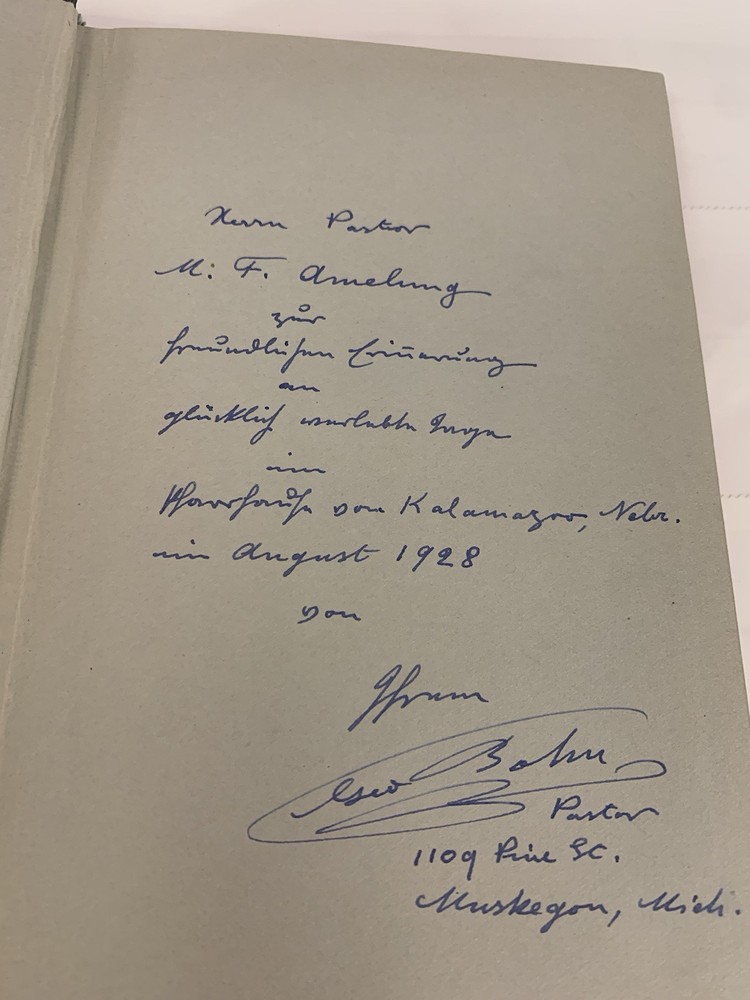 Herrn Pastor
M. F. Amelung
zur
freundlichen Erin̅erung
an
glücklich verlebte Tage
im
Pfarrhause von Kalamazoo, Nebr.
im August 1928
von
Ihrem
Bohn
Pastor
1109 Pine St.
Muskegon, Mich.